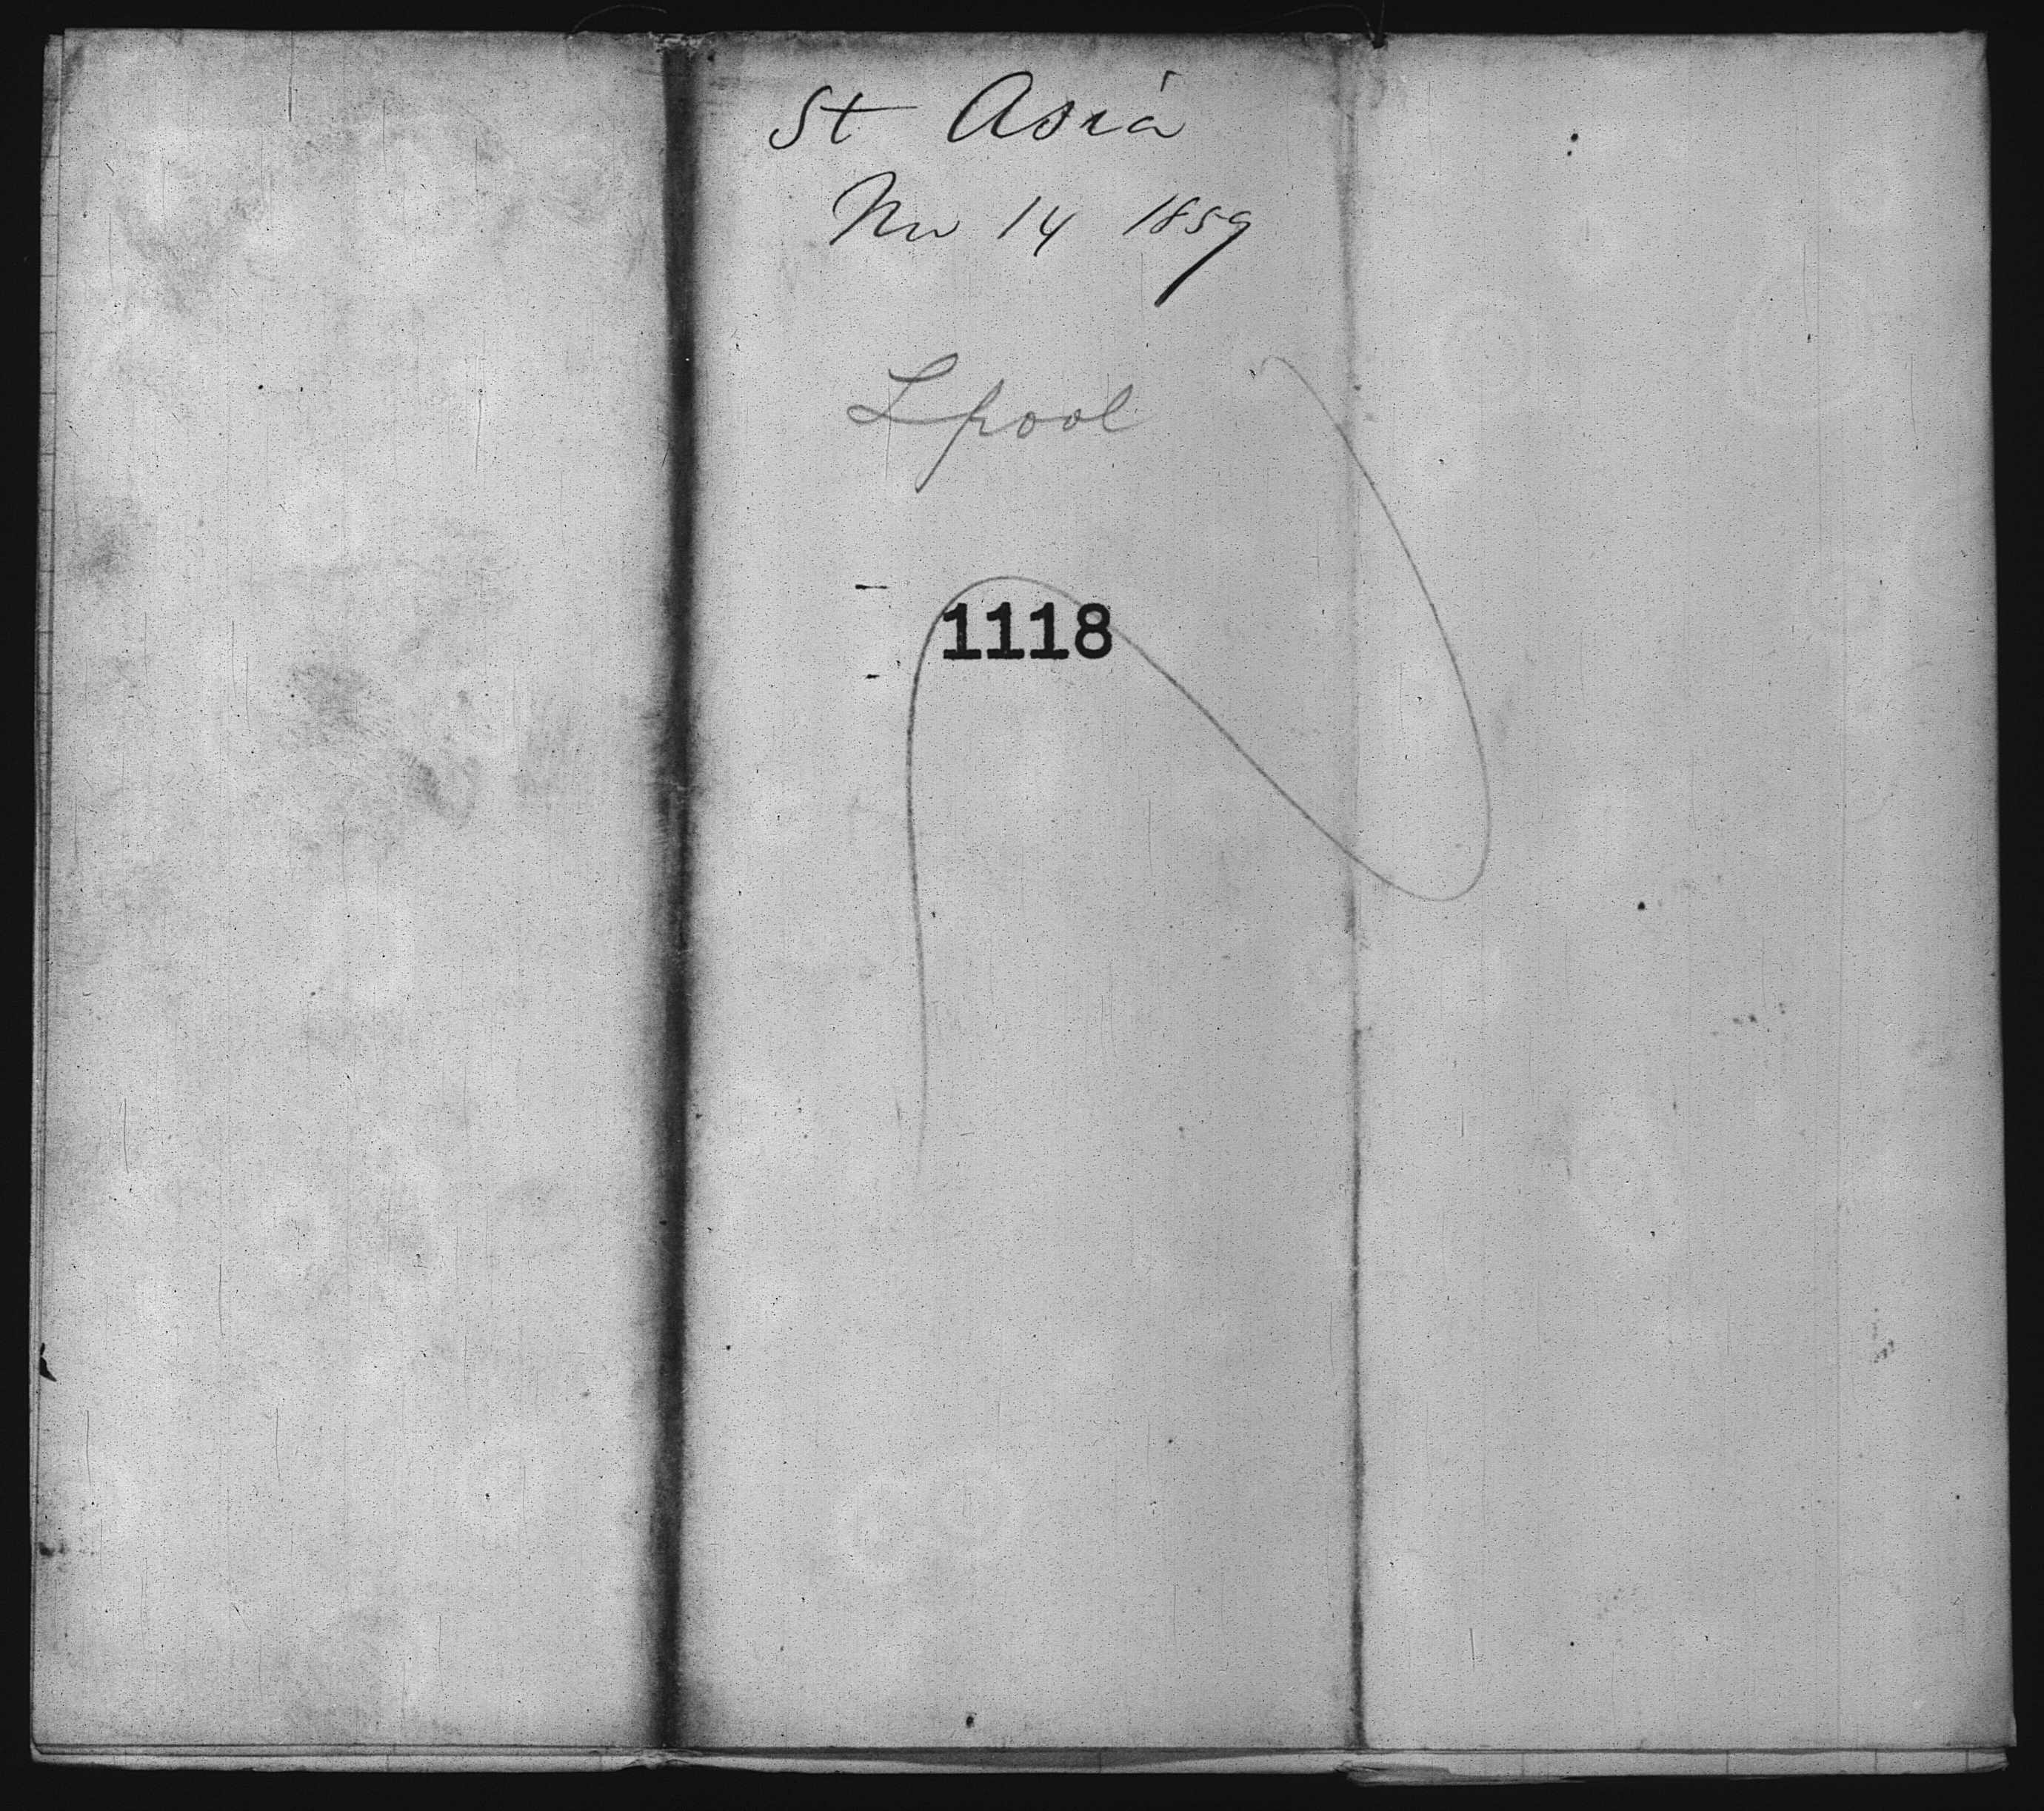 St Asia
Nov 14 1859
Lpool
1118